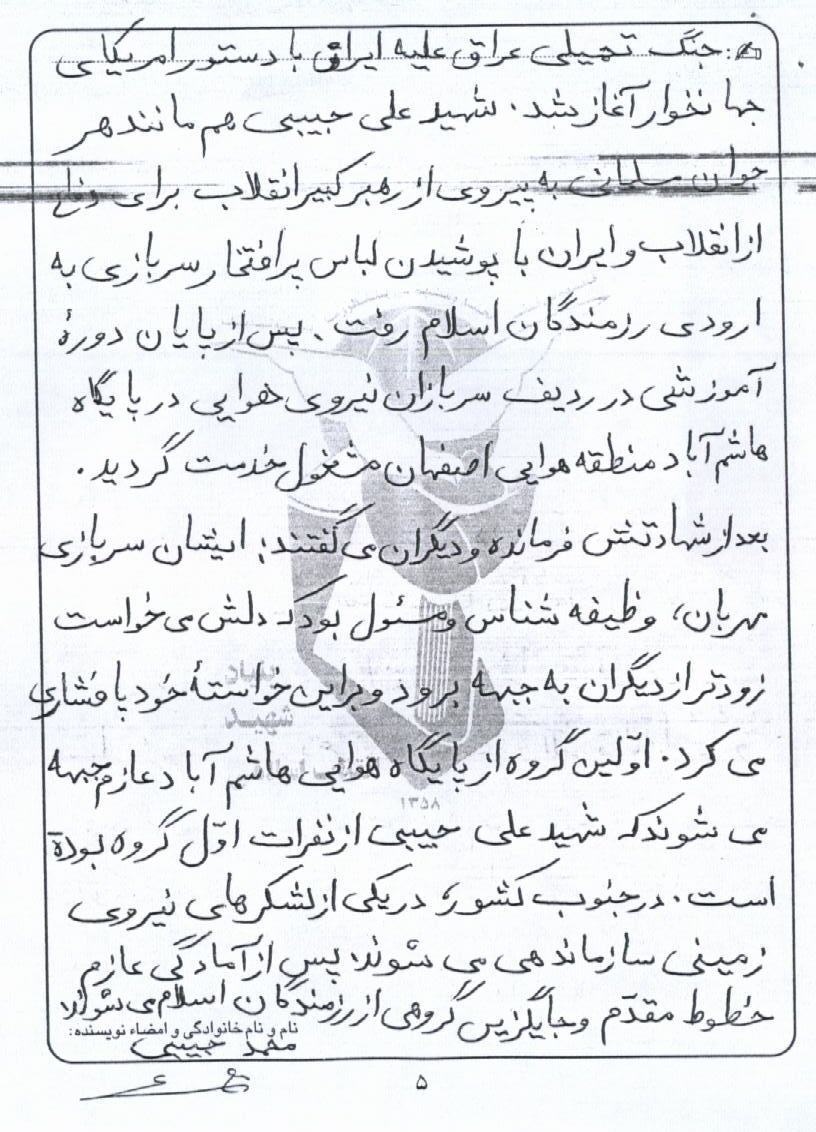 جنگ تحمیلی عراق علیه ایران با دستور امریکای
جهانخوار آغاز شد. شهید علی حبیبی هم مانند هر
جوان مسلمانی به پیروی از رهبر کبیر انقلاب برای دفاع
از انقلاب و ایران با پوشیدن لباس پر افتخار سربازی به
اردوی رزمندگان اسلام رفت. پس از پایان دورهٔ
آموزشی در ردیف سربازان نیروی هوایی در پایگاه
هاشم آباد منطقه هوایی اصفهان مشغول خدمت گردید.
بعد از شهادتش فرمانده و دیگران می گفتند: ایشان سربازی
مهربان، وظیفه شناس و مسئول بود که دلش می خواست
زودتر از دیگران به جبهه برود و براین خواستهٔ خود پافشاری
می کرد. اوّلین گروه از پایگاه هوایی هاشم آباد عازم جبهه
می شوند که شهید علی حبیبی از نفرات اوّل گروه بوده
است. در جنوب کشور در یکی از لشکرهای نیروی
زمینی سازماندهی می شوند پس از آمادگی عازم
خطوط مقدّم و جایگزین گروهی از رزمندگان اسلام می شوند
نام و نام خانوادگی و امضاء نویسنده:
محمد حبیبی
۵
بنیاد
شهید
انقلاب اسلامی
۱۳۵۸